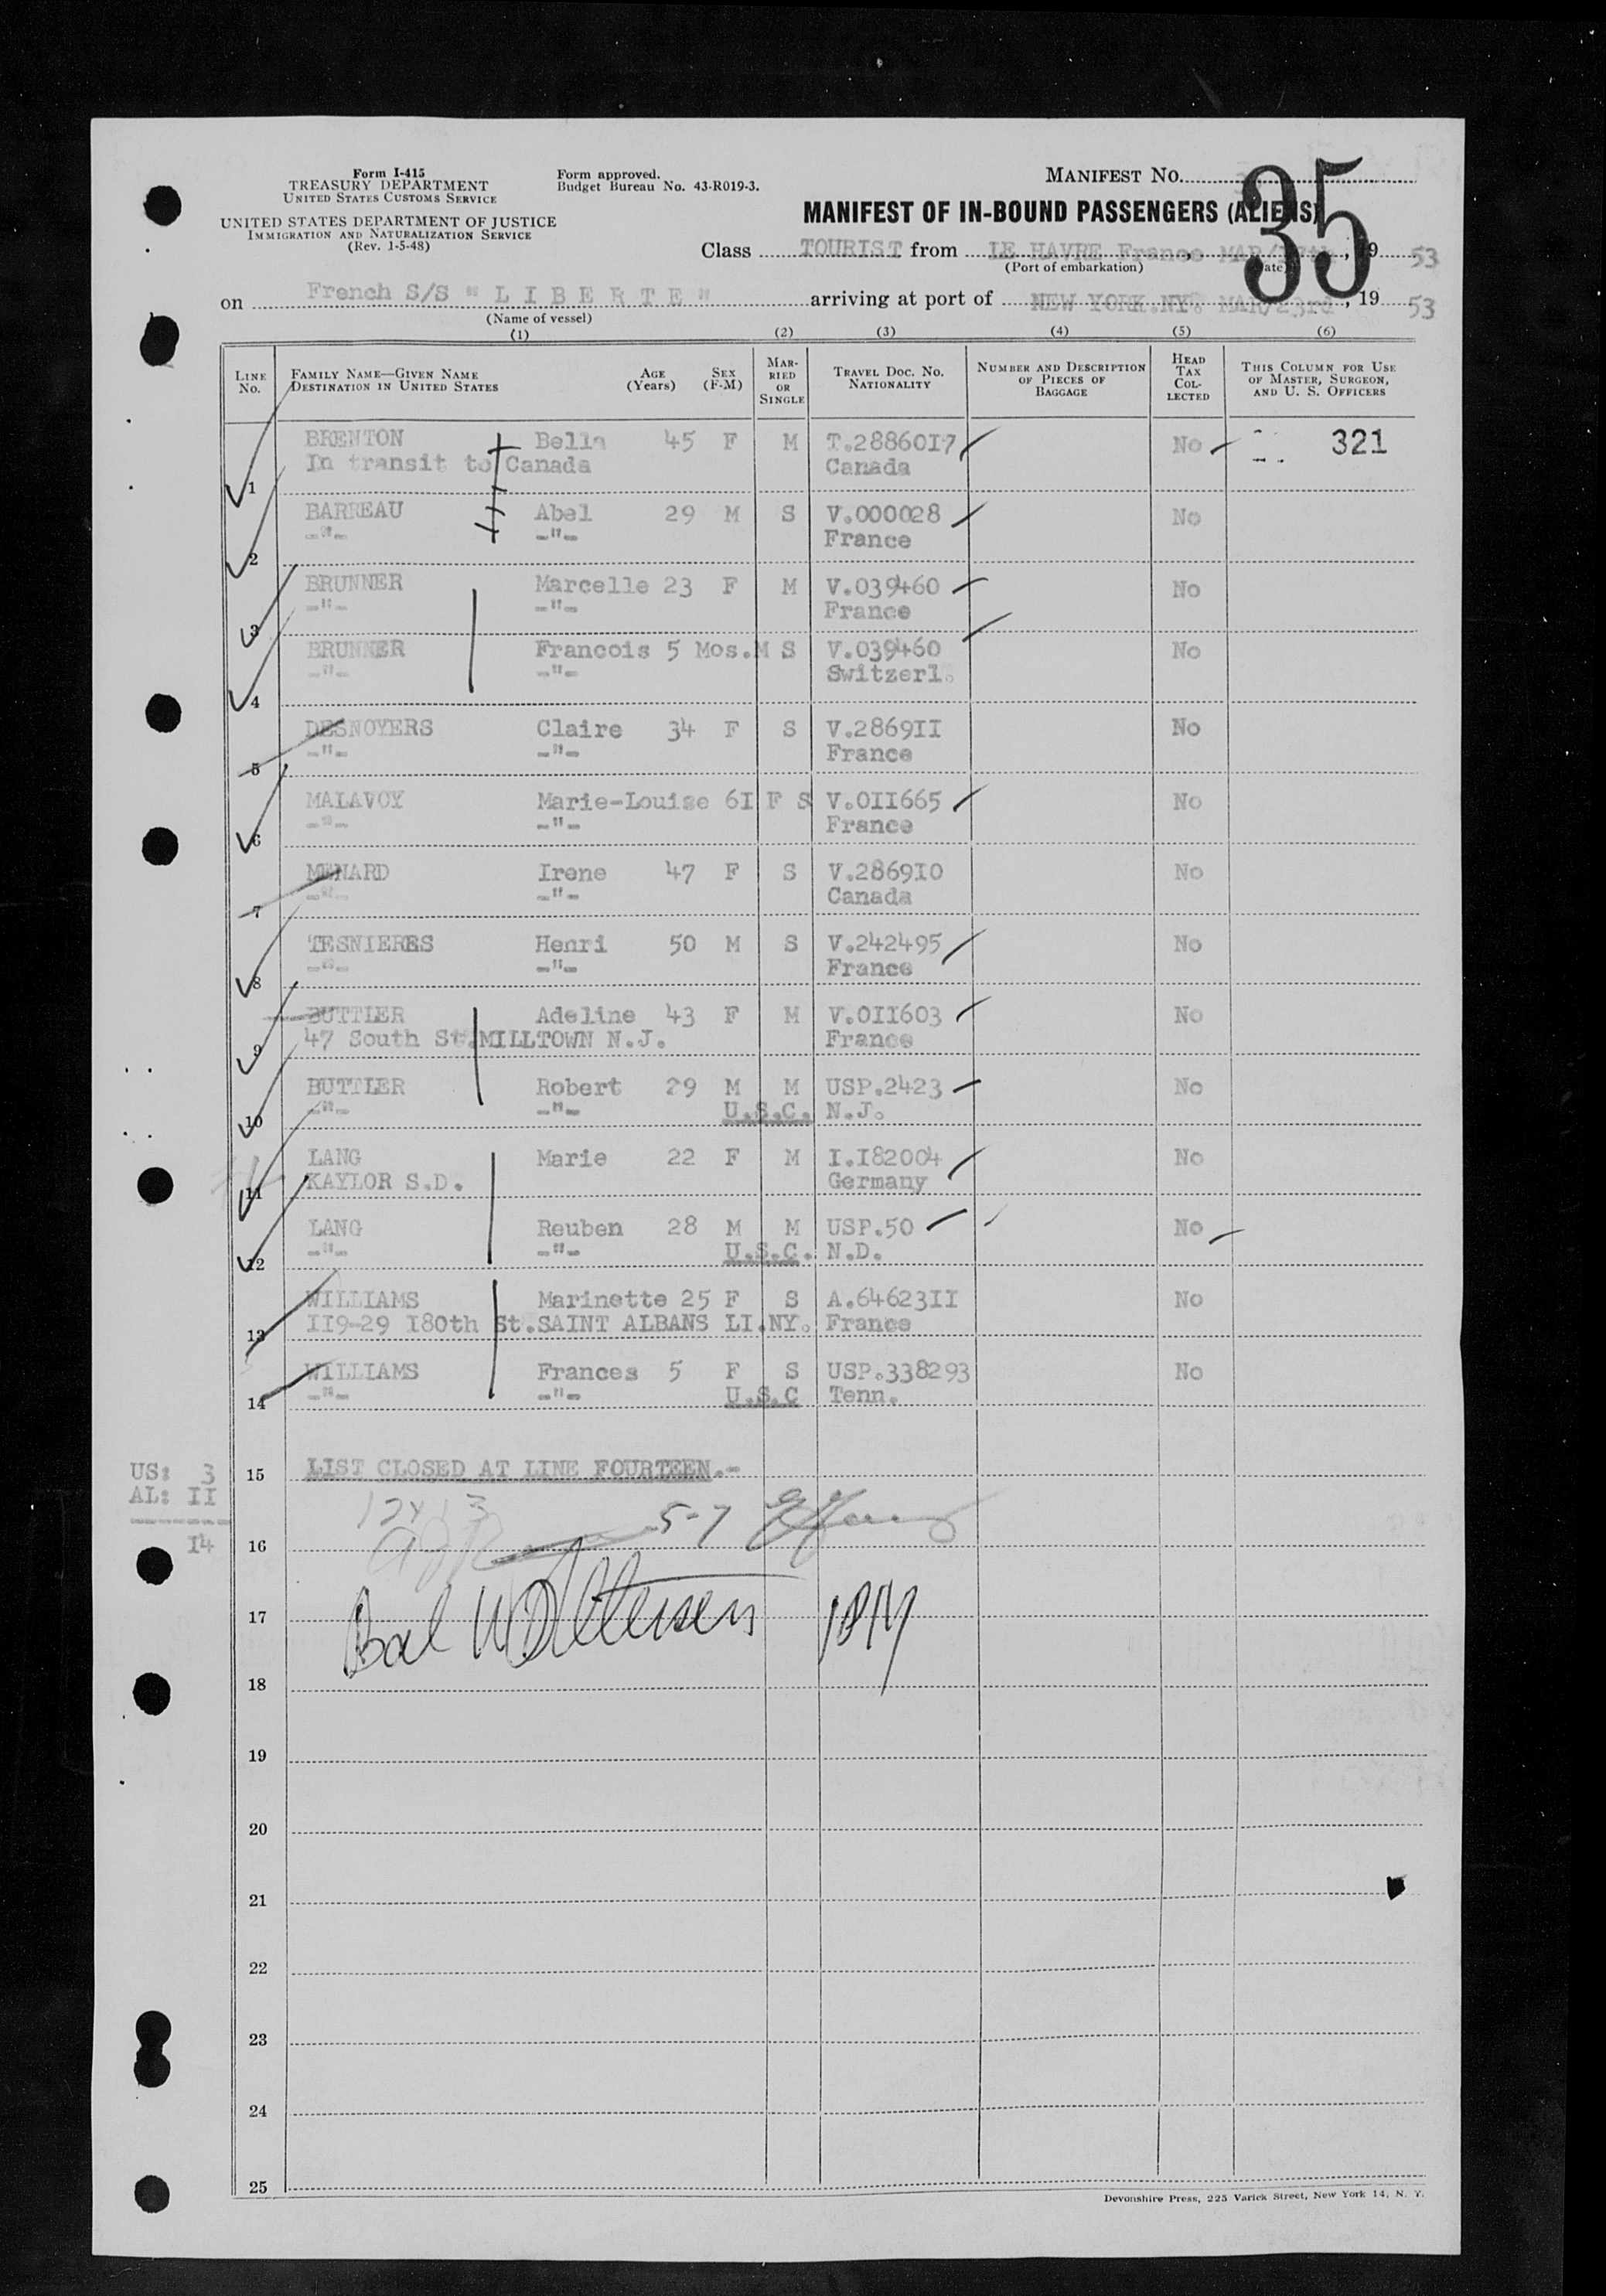 Form I-415
TREASURY DEPARTMENT
UNITED STATES CUSTOMS SERVICE
UNITED STATES DEPARTMENT OF JUSTICE
IMMIGRATION AND NATURALIZATION SERVICE
(Rev. 1-5-48)
Form approved.
Budget Bureau No. 43-R019-3.
MANIFEST NO.
35
MANIFEST OF IN-BOUND PASSENGERS (ALIENS)
Class TOURIST from LE HAVRE France MAR/17th, 19 53
(Port of embarkation) (Date)
on French S/S " L I B E R T E " arriving at port of NEW YORK.NY. MAR/23rd, 19 53
(Name of vessel)
(1) (2) (3) (4) (5) (6)
LINE No. FAMILY NAME—GIVEN NAME DESTINATION IN UNITED STATES AGE (Years) SEX (F-M) MARRIED OR SINGLE TRAVEL DOC. NO. NATIONALITY NUMBER AND DESCRIPTION OF PIECES OF BAGGAGE HEAD TAX COLLECTED THIS COLUMN FOR USE OF MASTER, SURGEON, AND U. S. OFFICERS
BRENTON Bella 45 F M T.2886017 No 321
1 In transit to Canada Canada
BARREAU Abel 29 M S V.000028 No
2 -"- -"- France
BRUNNER Marcelle 23 F M V.039460 No
3 -"- -"- France
BRUNNER Francois 5 Mos.M S V.039460 No
4 -"- -"- Switzerl.
DESNOYERS Claire 34 F S V.2869II No
5 -"- -"- France
MALAVOY Marie-Louise 6I F S V.0II665 No
6 -"- -"- France
MENARD Irene 47 F S V.2869I0 No
7 -"- -"- Canada
TESNIERES Henri 50 M S V.242495 No
8 -"- -"- France
BUTTLER Adeline 43 F M V.0II603 No
9 47 South St.MILLTOWN N.J. France
BUTTLER Robert 29 M M USP.2423 No
10 -"- -"- U.S.C. N.J.
LANG Marie 22 F M I.I82004 No
11 KAYLOR S.D. Germany
LANG Reuben 28 M M USP.50 No
12 -"- -"- U.S.C. N.D.
WILLIAMS Marinette 25 F S A.64623II No
13 II9-29 I80th St.SAINT ALBANS LI.NY. France
WILLIAMS Frances 5 F S USP.338293 No
14 -"- -"- U.S.C Tenn.
15 LIST CLOSED AT LINE FOURTEEN.-
US: 3
AL: II
14
5-7
16
17
18
19
20
21
22
23
24
25
Devonshire Press, 225 Varick Street, New York 14, N. Y.